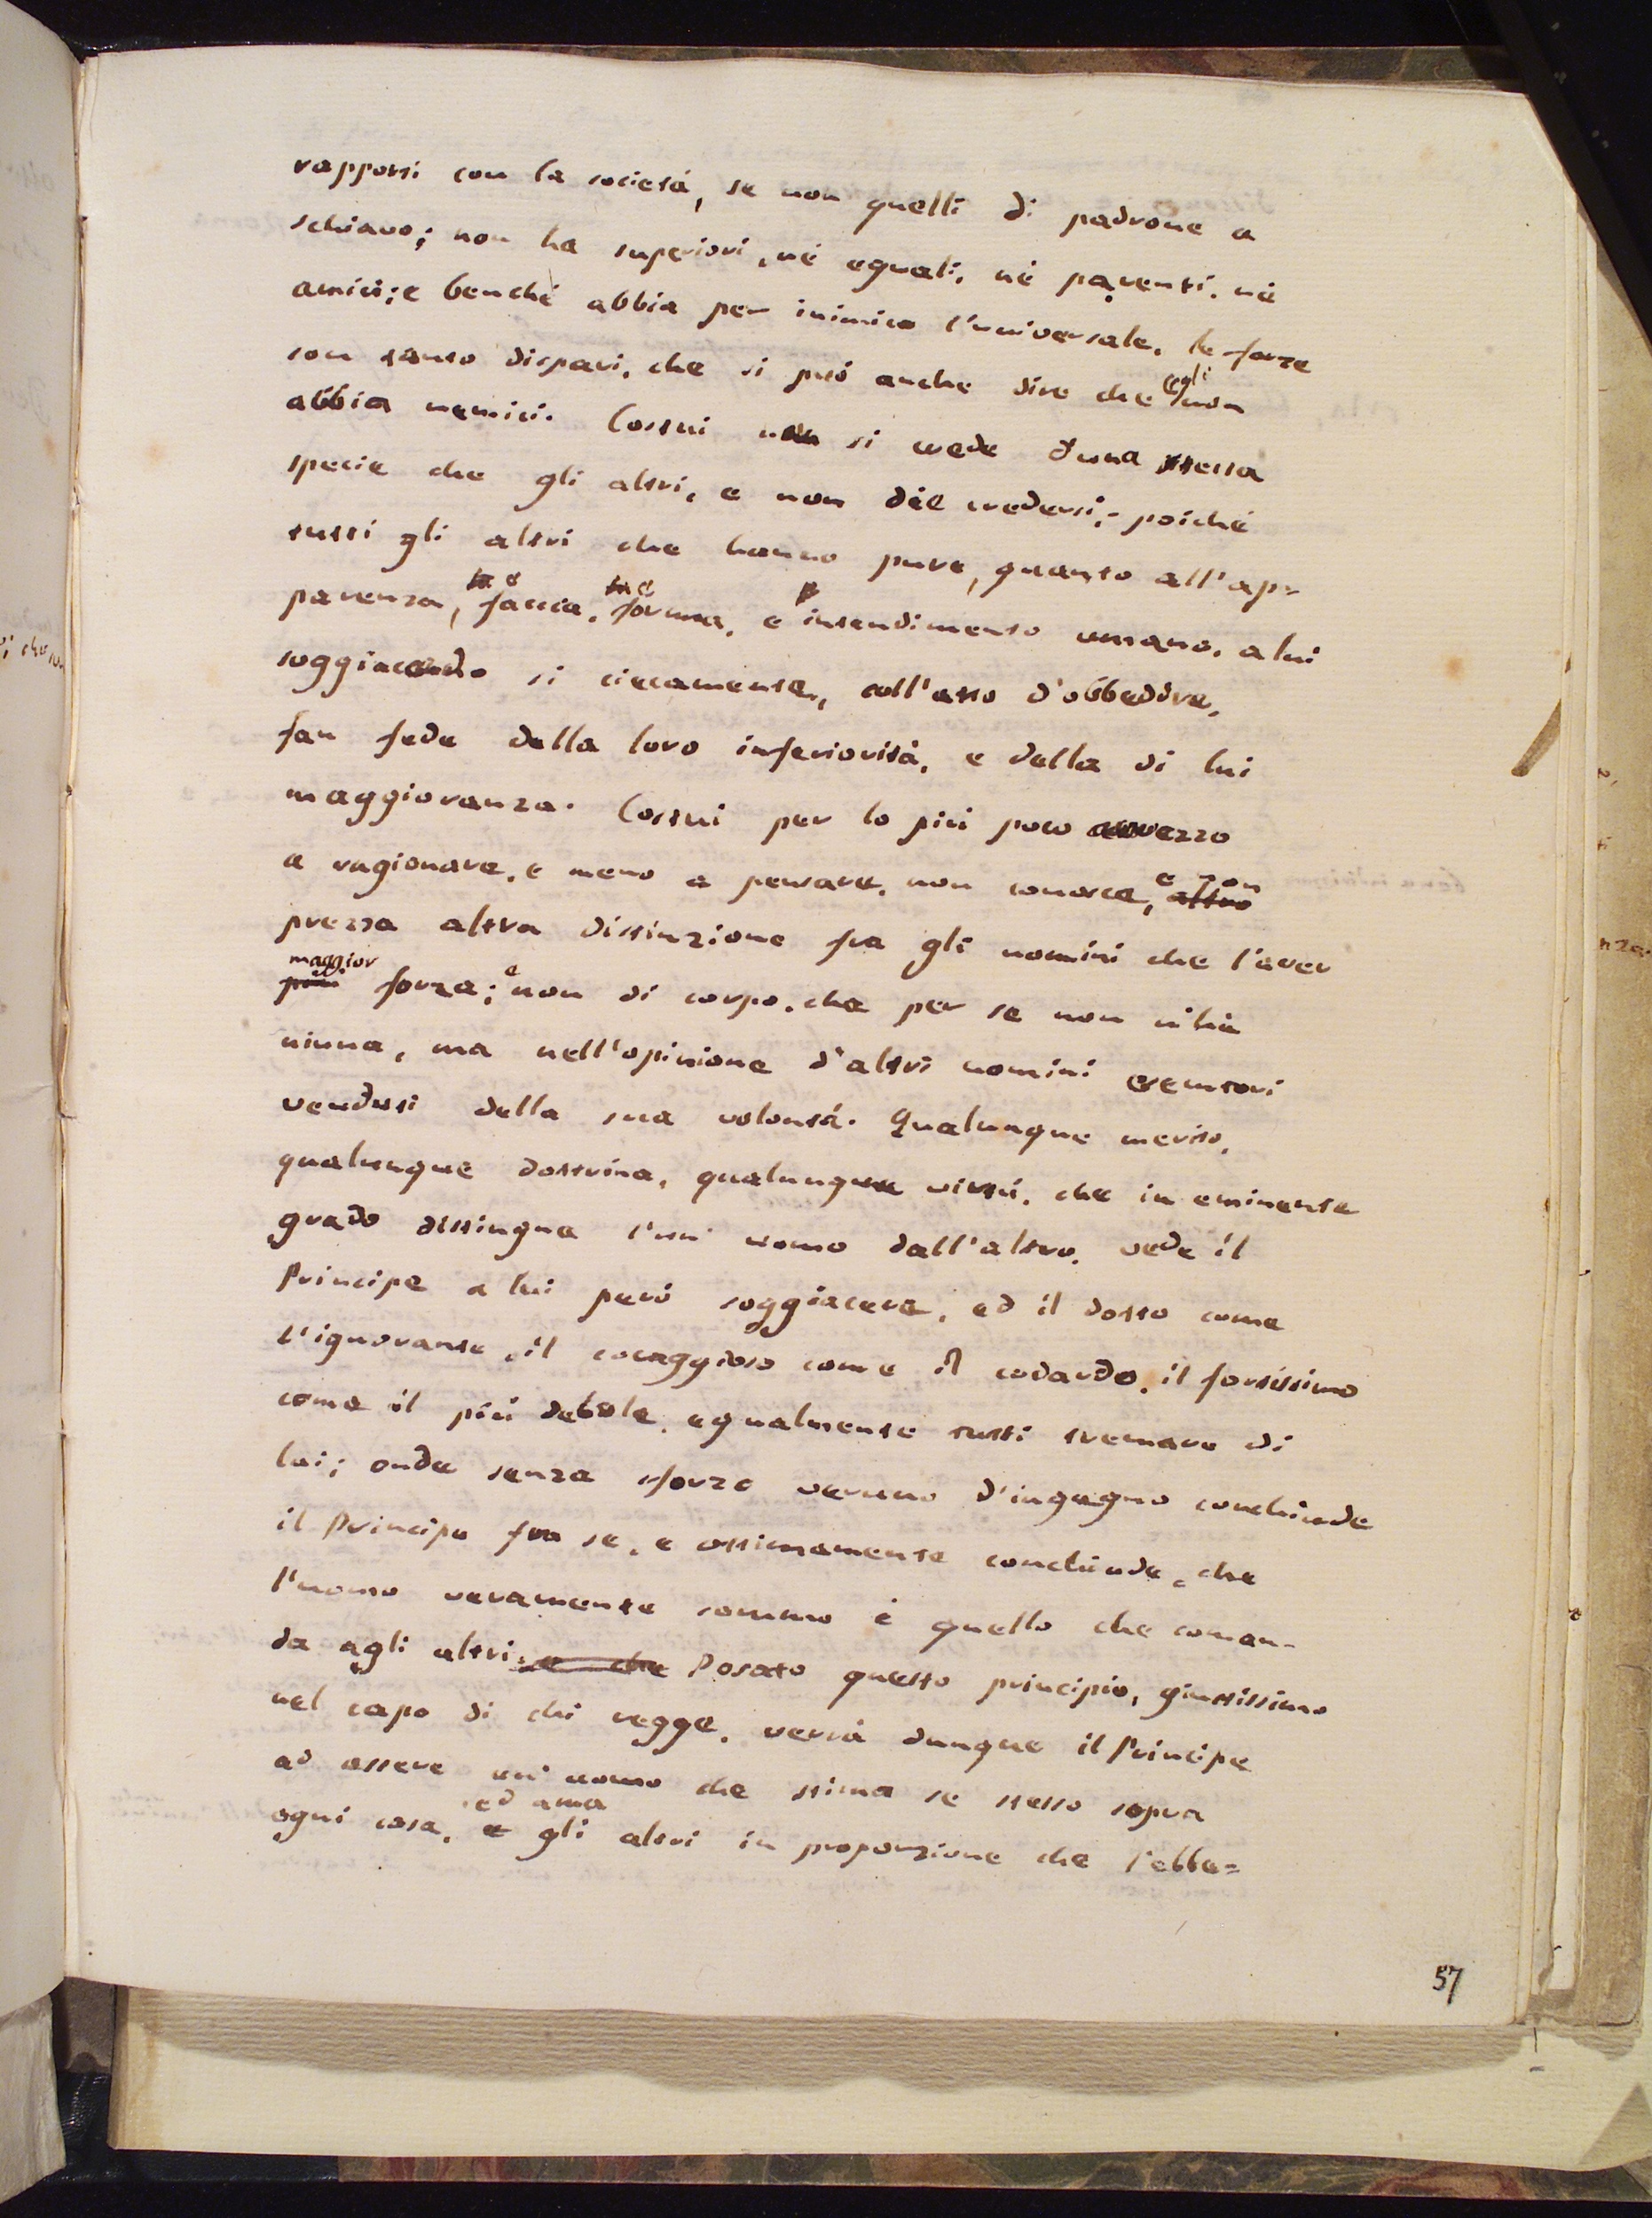 rapporti con la società, se non quelli di padrone a
schiavo; non ha superiori, né eguali, né parenti, né
amici; e benché abbia per inimico l'universale, le forze
son tanto dispari, che si può anche dire che egli non
abbia nemici. Costui non si crede d'una stessa
specie che gli altri, e non dée credersi; poiché
tutti gli altri che hanno pure, quanto all'ap=
parenza, e faccia, e forma, e intendimento umano, a lui
soggiacendo sì ciecamente, coll'atto d'obbedire,
fan fede della loro inferiorità, e della di lui
maggioranza. Costui per lo più poco avvezzo
a ragionare, e meno a pensare, non conosce, altro e non
prezza altra distinzione fra gli uomini che l'aver
più maggior forza; e non di corpo, che per se non n'ha
niuna, ma nell'opinione d'altri uomini esecutori
venduti della sua volontà. Qualunque merito,
qualunque dottrina, qualunque virtù, che in eminente
grado distingua l'un' uomo dall'altro, vede il
Principe a lui però soggiacere, ed il dotto come
l'ignorante, il coraggioso come il codardo, il fortissimo
come il più debole, egualmente tutti tremare di
lui; onde senza sforzo veruno d'ingegno conchiude
il Principe fra se, e ottimamente conchiude, che
l'uomo veramente sommo è quello che coman-
da agli altri: e che Posato questo principio, giustissimo
nel capo di chi regge, verrà dunque il Principe
ad essere un' uomo che stima se stesso sopra
ogni cosa, e ed ama gli altri in proporzione che l'obbe=
57